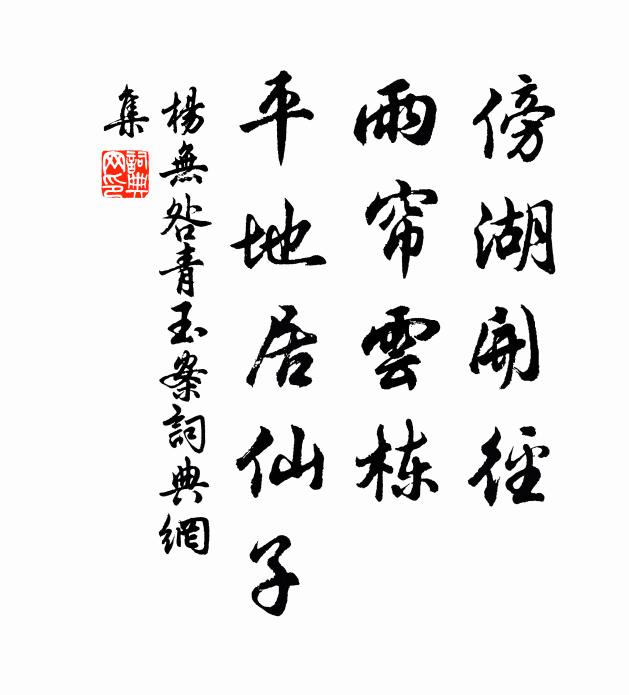 傍湖開徑
雨帘雲栋
平地居仙子
楊無咎青玉案詞典網
集
詞典
网印